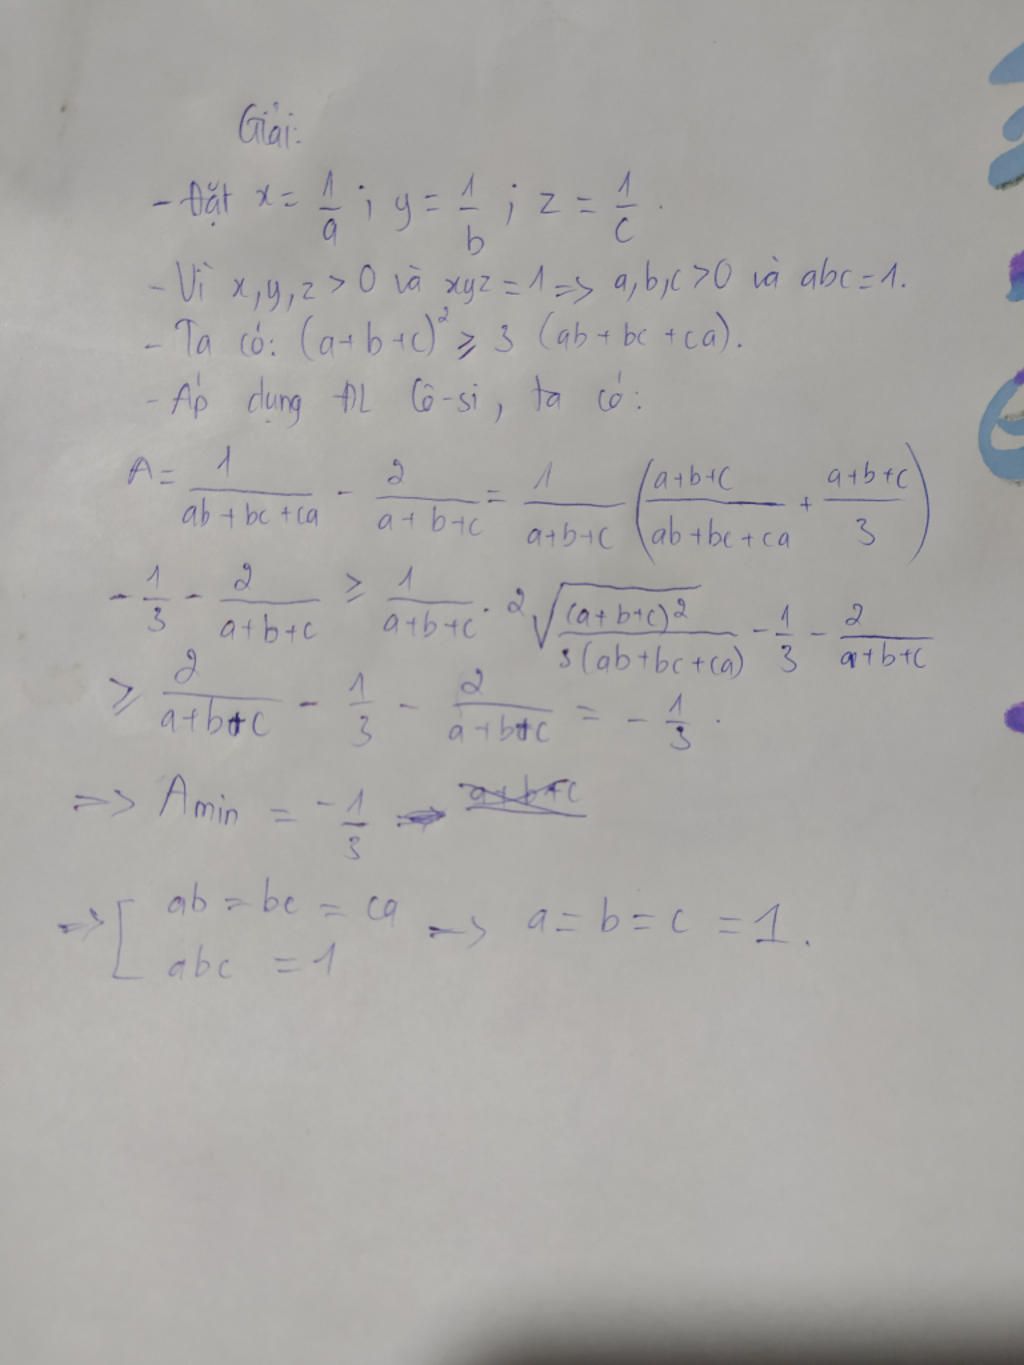 Giải:
- Đặt x = 1/a ; y = 1/b ; z = 1/c .
- Vì x,y,z > 0 và xyz = 1 => a,b,c > 0 và abc = 1.
- Ta có: (a+b+c)² ≥ 3 (ab + bc + ca).
- Áp dụng ĐL Cô-si, ta có:
A = 1/(ab+bc+ca) - 2/(a+b+c) = 1/(a+b+c) ((a+b+c)/(ab+bc+ca) + (a+b+c)/3)
- 1/3 - 2/(a+b+c) ≥ 1/(a+b+c) . 2√((a+b+c)²/(3(ab+bc+ca))) - 1/3 - 2/(a+b+c)
≥ 2/(a+b+c) - 1/3 - 2/(a+b+c) = - 1/3 .
=> Amin = -1/3
=> [ ab = bc = ca -> a = b = c = 1 .
abc = 1